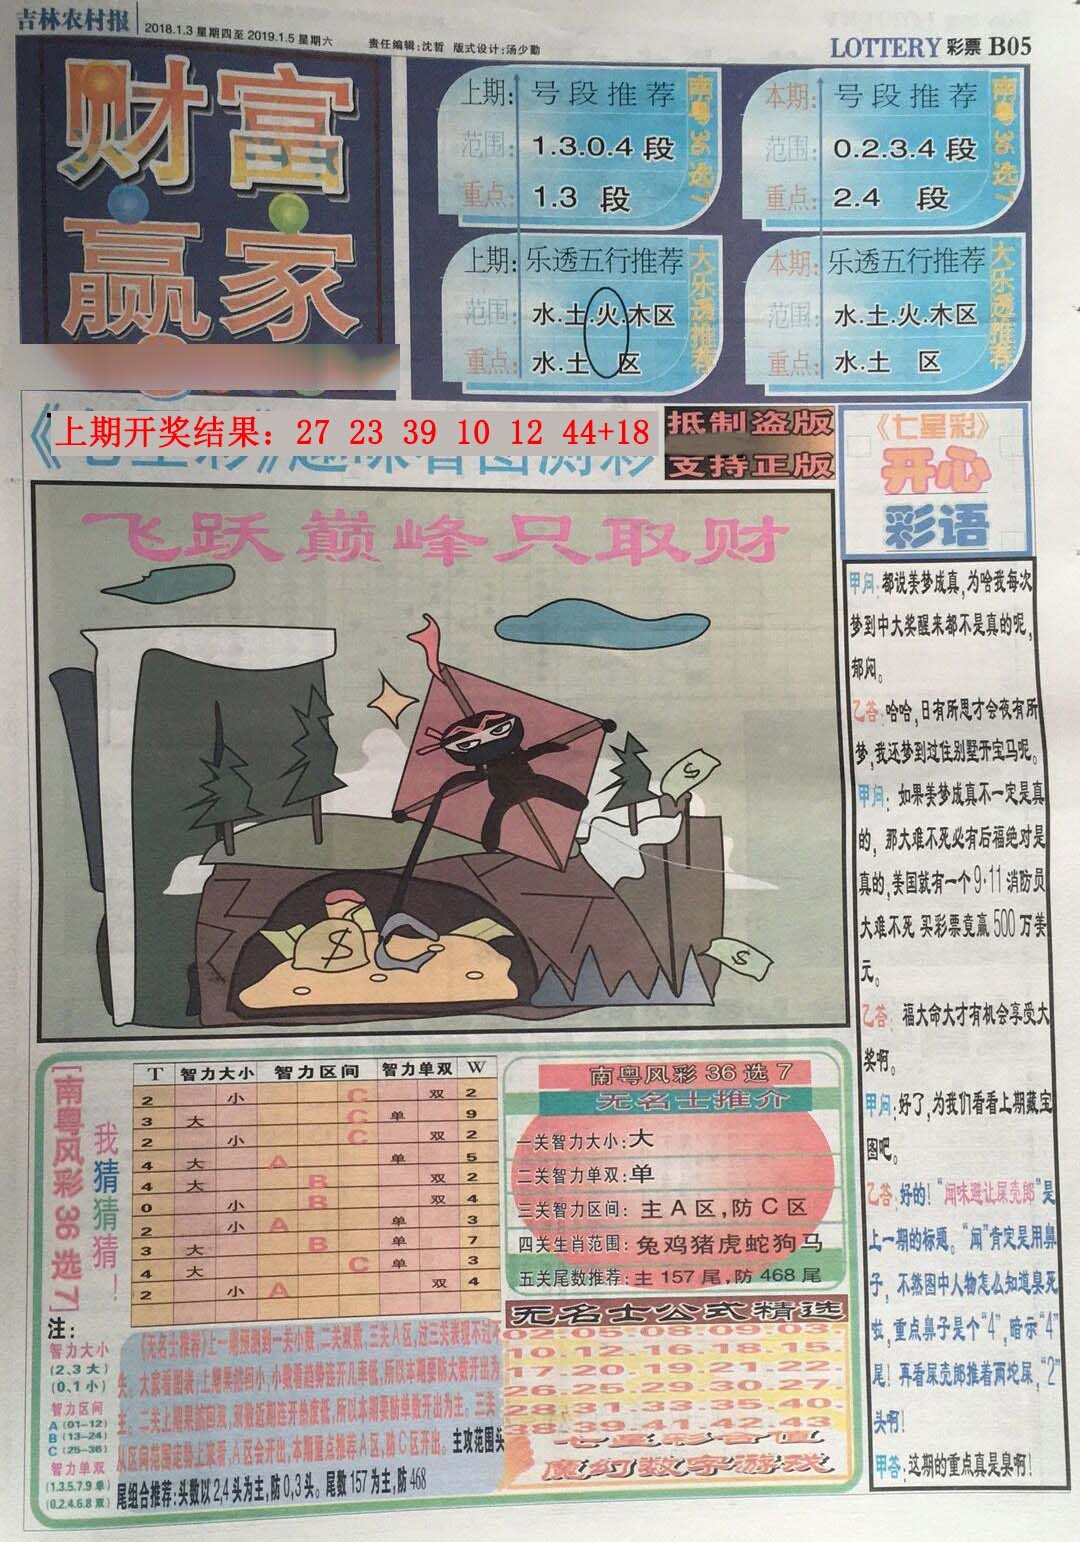 吉林农村报
2018.1.3 星期四至 2019.1.5 星期六
责任编辑:沈哲 版式设计:汤少勤
LOTTERY 彩票 B05
财富
赢家
上期: 号段推荐
范围: 1.3.0.4 段
重点: 1.3 段
南粤36选7
本期: 号段推荐
范围: 0.2.3.4 段
重点: 2.4 段
南粤36选7
上期: 乐透五行推荐
范围: 水.土.火.木区
重点: 水.土 区
大乐透推荐
本期: 乐透五行推荐
范围: 水.土.火.木区
重点: 水.土 区
大乐透推荐
上期开奖结果：27 23 39 10 12 44+18
抵制盗版
支持正版
飞跃巅峰只取财
$
$
$
《七星彩》
开心
彩语
甲问:都说美梦成真,为啥我每次
梦到中大奖醒来都不是真的呢,
郁闷。
乙答:哈哈,日有所思才会夜有所
梦,我还梦到过住别墅开宝马呢。
甲问:如果美梦成真不一定是真
的,那大难不死必有后福绝对是
真的,美国就有一个9·11消防员
大难不死 买彩票竟赢500万美
元。
乙答:福大命大才有机会享受大
奖啊。
甲问:好了,为我们看看上期藏宝
图吧。
乙答:好的!“闻味避让屎壳郎”是
上一期的标题。“闻”肯定是用鼻
子,不然图中人物怎么知道臭死
啦,重点鼻子是个“4”,暗示“4”
尾!再看屎壳郎推着两坨屎,“2”
头啊!
甲答:这期的重点真是臭啊!
[南粤风彩36选7]
我猜猜猜!
T 智力大小 智力区间 智力单双 W
2 小 C 双 2
3 大 C 单 9
2 小 C 双 2
4 大 A 单 5
4 大 B 双 2
0 小 B 双 4
2 小 A 单 3
3 大 B 单 7
4 大 C 单 3
2 小 A 双 4
注:
智力大小
(2.3 大)
(0.1 小)
智力区间
A (01-12)
B (13-24)
C (25-36)
智力单双
(1.3.5.7.9 单)
(0.2.4.6.8 双)
《无名士推荐》上一期预测到一关小数,二关双数,三关A区,过三关表现不过不
失。大家看图表,上期果然回小,小数看趋势连开几率低,所以本期要防大数开出为
主。二关上期果然回双,双数近期连开热度低,所以本期要防单数开出为主。三关
从区间范围走势上来看,A区会开出,本期重点推荐A区,防C区开出。主攻范围头
尾组合推荐:头数以2,4头为主,防0,3头。尾数157为主,防468
南粤风彩36选7
无名士推介
一关智力大小:大
二关智力单双:单
三关智力区间:主A区,防C区
四关生肖范围:兔鸡猪虎蛇狗马
五关尾数推荐:主157尾,防468尾
无名士公式精选
02-05-08-09-03-
10-12-16-18-15-
17-20-19-21-22-
26-25-29-30-27-
28-31-33-35-40-
38-39-41-42-43
七星彩奇值
魔幻数字游戏